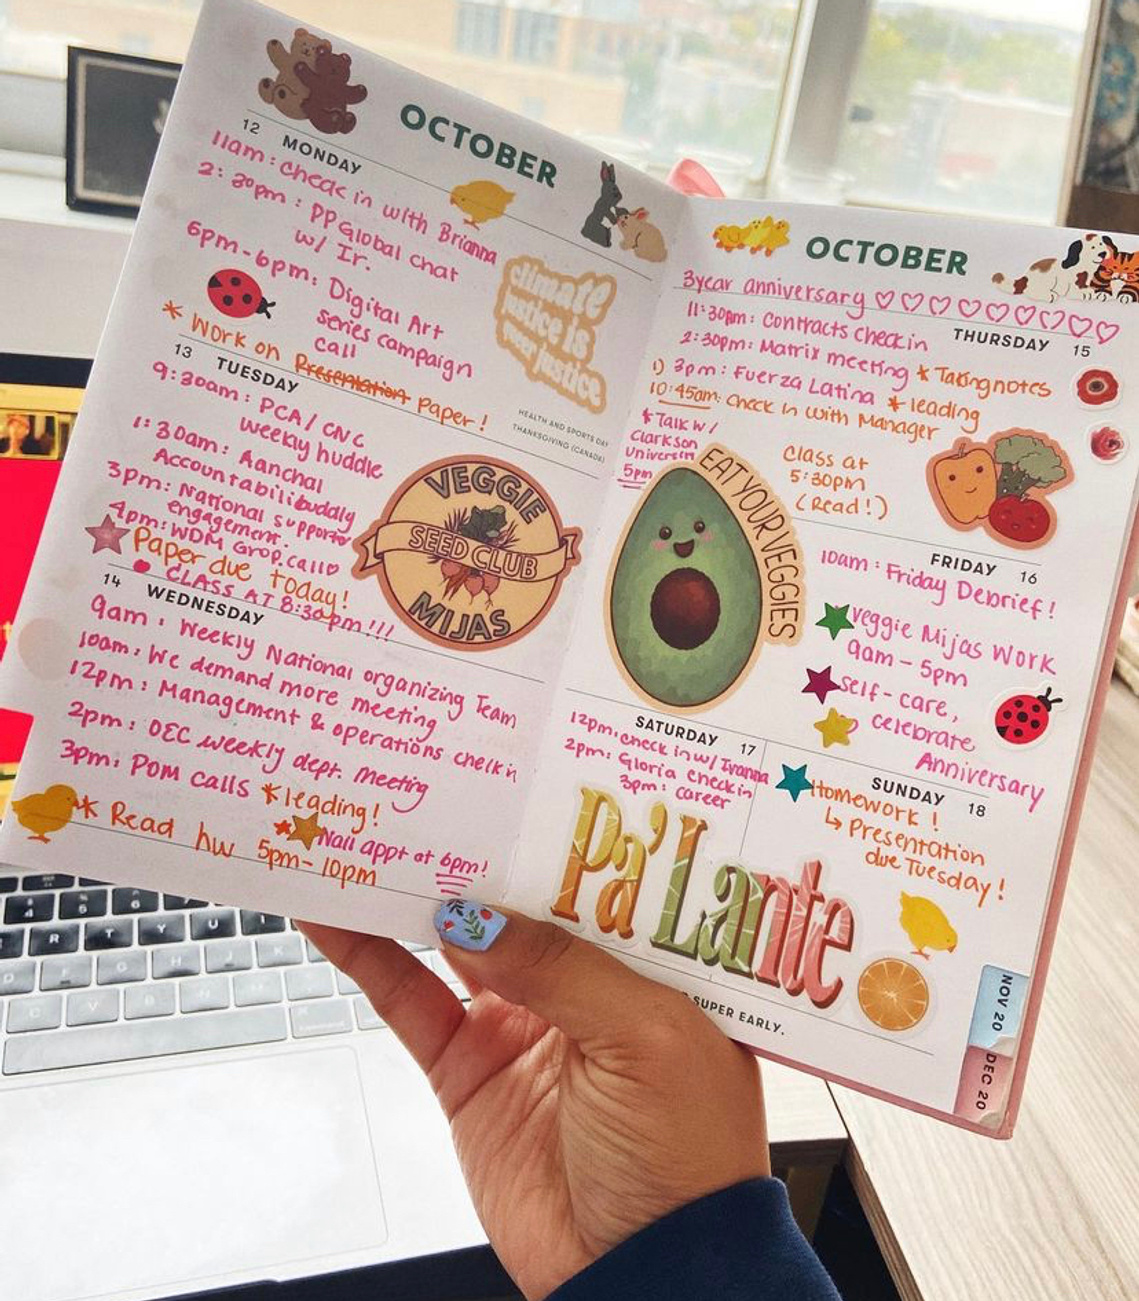 OCTOBER
12 MONDAY
11am: check in with Brianna
2:30pm: PPGlobal chat
w/ Ir.
6pm-6pm: Digital Art
series campaign
call
* Work on Presentation paper!
climate
justice is
HEALTH AND SPORTS DAY
THANKSGIVING (CANADA)
13 TUESDAY
9:30am: PCA/CNC
weekly huddle
1:30am: Aanchal
Accountabilibuddy
3pm: National supporter
engagement.
4pm: WDM Grop.call
Paper due today!
CLASS AT 8:30pm!!!
VEGGIE
SEED CLUB
MIJAS
14 WEDNESDAY
9am: Weekly National organizing Team
10am: We demand more meeting
12pm: Management & operations chelkin
2pm: OEC weekly dept. meeting
3pm: Pom calls *leading!
* Nail appt at 6pm!
* Read hw 5pm-10pm
OCTOBER
3year anniversary ♡♡♡♡♡♡♡♡♡
THURSDAY 15
11:30am: contracts checkin
2:30pm: Matrix meeting * Taking notes
1) 3pm: Fuerza Latina * leading
10:45am: check in with Manager
* Talk w/
Clarkson
Universen
5pm
class at
5:30pm
(Read!)
EAT YOUR VEGGIES
FRIDAY 16
10am: Friday Debrief!
Veggie Mijas Work
9am-5pm
self-care,
celebrate
Anniversary
SATURDAY 17
12pm: check in w/ Ivanna
2pm: Gloria check in
3pm: career
SUNDAY 18
Homework!
↳ Presentation
due Tuesday!
Pa'Lante
SUPER EARLY.
NOV 20
DEC 20